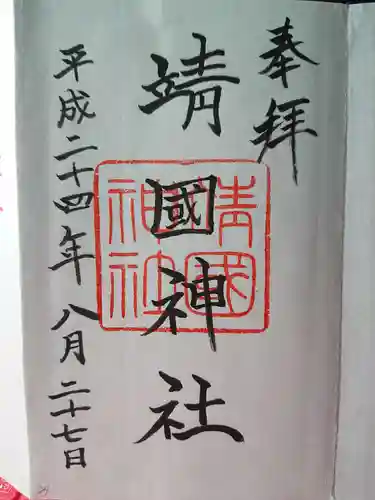 奉拝
靖國神社
靖國神社
平成二十四年八月二十七日